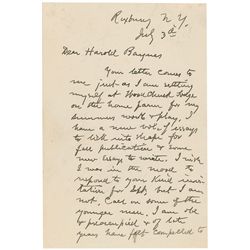 Roxbury N.Y.
July 3d
Dear Harold Baynes
Your letter comes to
me just as I am setting
myself at Woodchuck Lodge
on the home farm for my
summers work & play. I
have a new vol. of essays
to lick into shape for
fall publication & some
new essays to write. I wish
I was in the mood to
respond to your kind invi-
tation for Sept, but I am
not. Call on some of the
younger men. I am old
& preoccupied & of late
years have felt compelled to